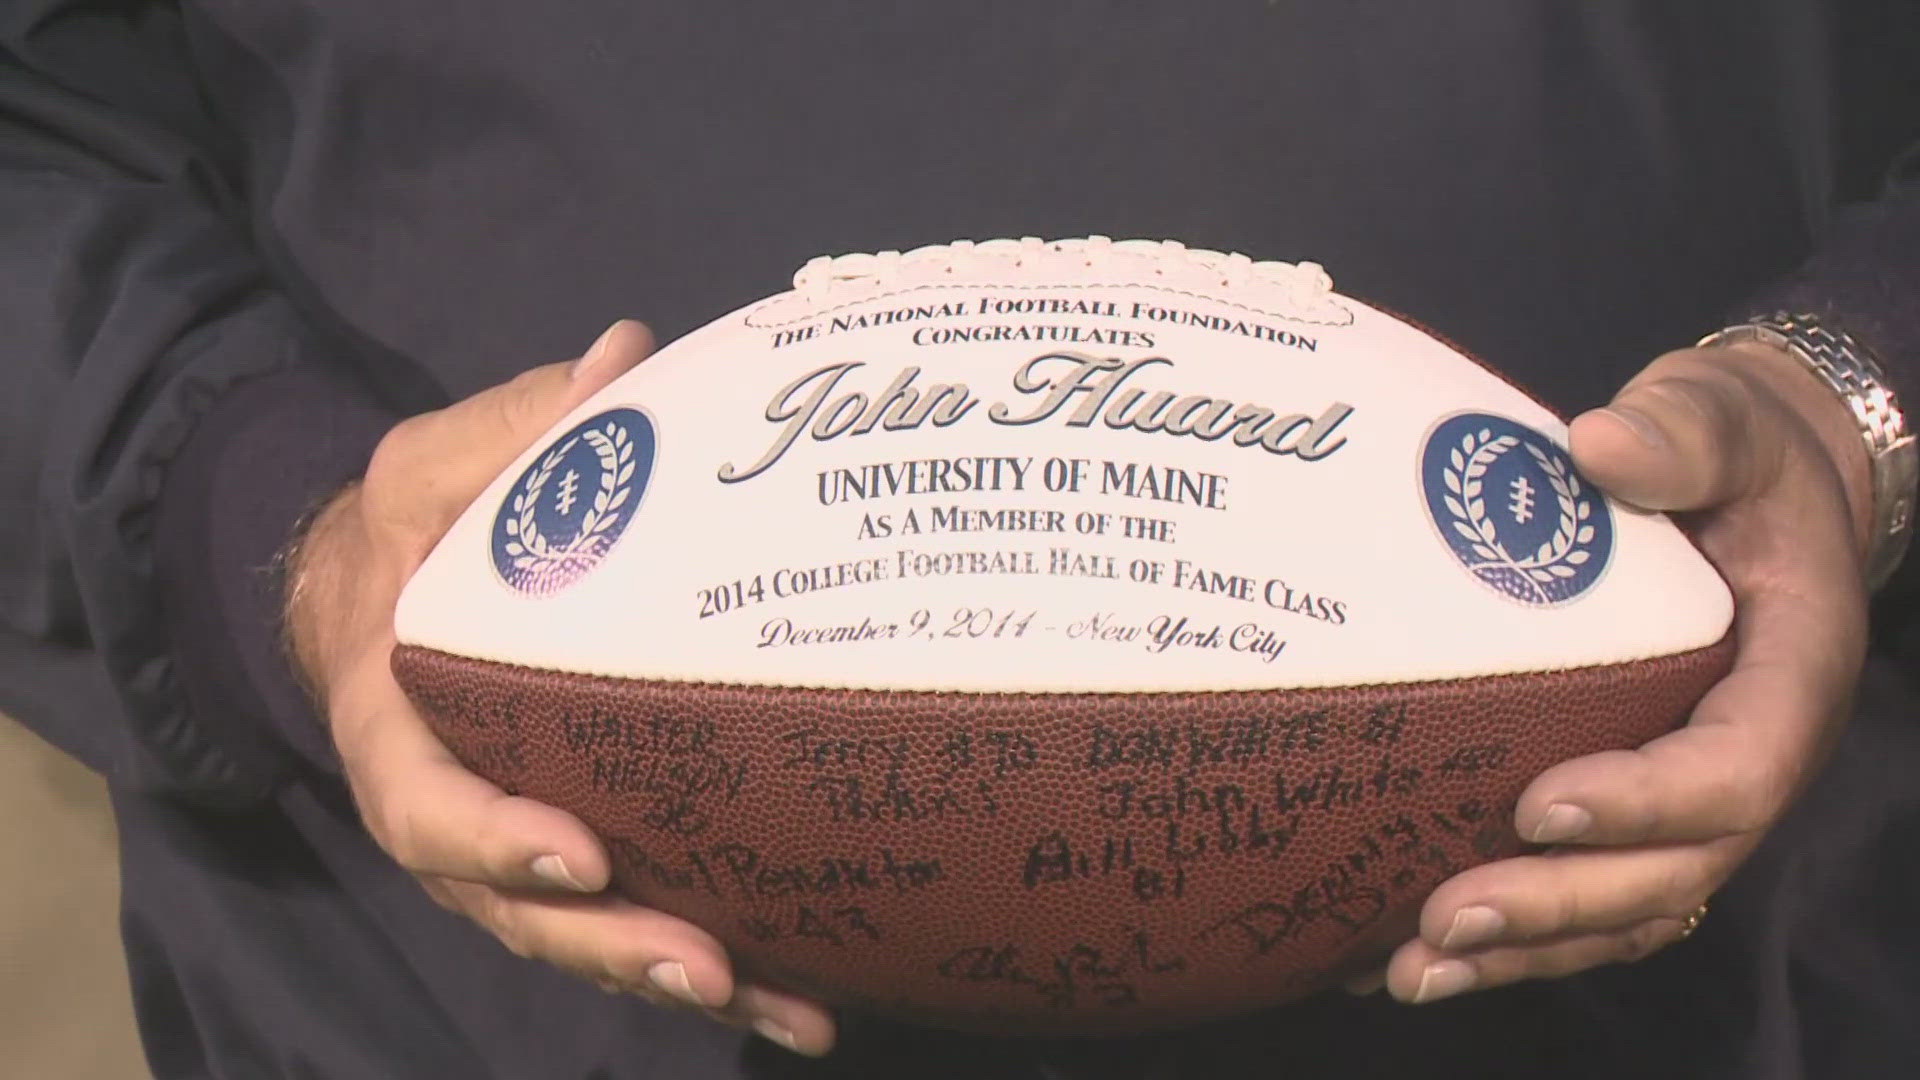 THE NATIONAL FOOTBALL FOUNDATION
CONGRATULATES
John Huard
UNIVERSITY OF MAINE
AS A MEMBER OF THE
2014 COLLEGE FOOTBALL HALL OF FAME CLASS
December 9, 2014 - New York City
WALTER Jerry #70 DON WHITE 81
NELSON John White
Paul Pendleton Bill Libby
81